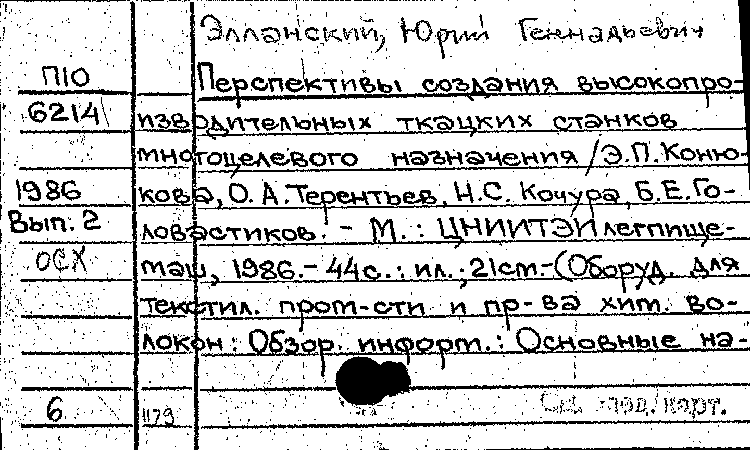 Элланский, Юрий Геннадьевич
П10
Перспективы создания высокопро-
6214
изводительных ткацких станков
многоцелевого назначения / Э.П. Коню-
1986
кова, О.А. Терентьев, Н.С. Кочура, Б.Е. Го-
Вып. 2
ловастиков. - М.: ЦНИИТЭИлегпище-
ОСХ
маш, 1986. - 44с.: ил.; 21см - (Оборуд. для
текстил. пром-сти и пр-ва хим. во-
локон: Обзор. информ.: Основные на-
6
1179
См. след. карт.